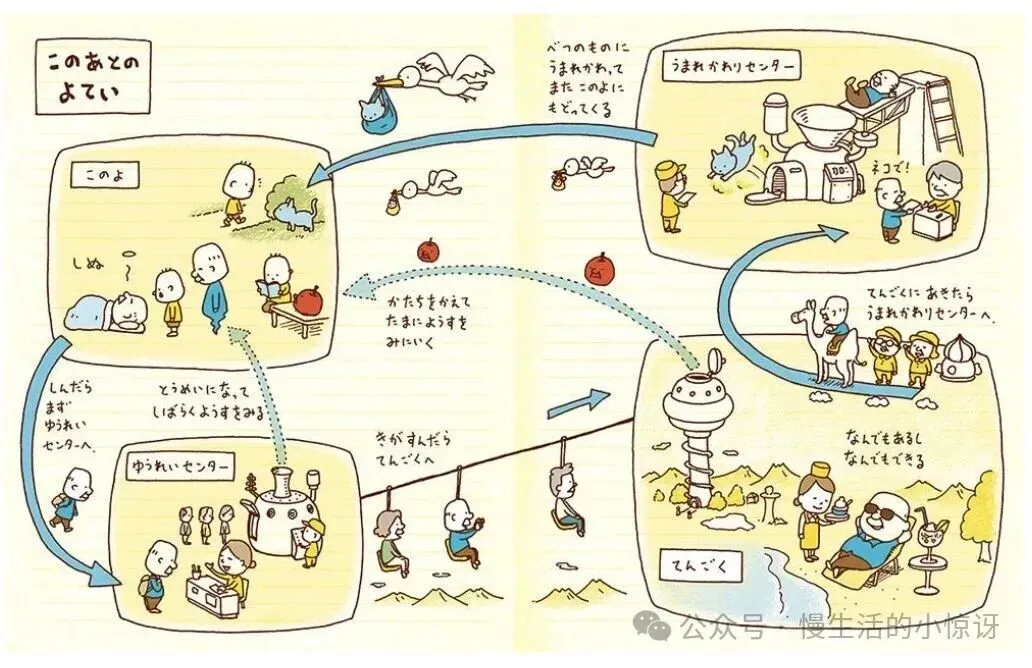 このあとの
よてい
べつのものに
うまれかわって
また このよに
もどってくる
うまれかわりセンター
ネコで!
このよ
しぬ
かたちをかえて
たまにようすを
みにいく
てんごくに あきたら
うまれかわりセンターへ.
しんだら
まず
ゆうれい
センターへ.
とうめいになって
しばらくようすをみる
ゆうれいセンター
きがすんだら
てんごくへ
なんでもあるし
なんでもできる
てんごく
公众号·慢生活的小惊讶